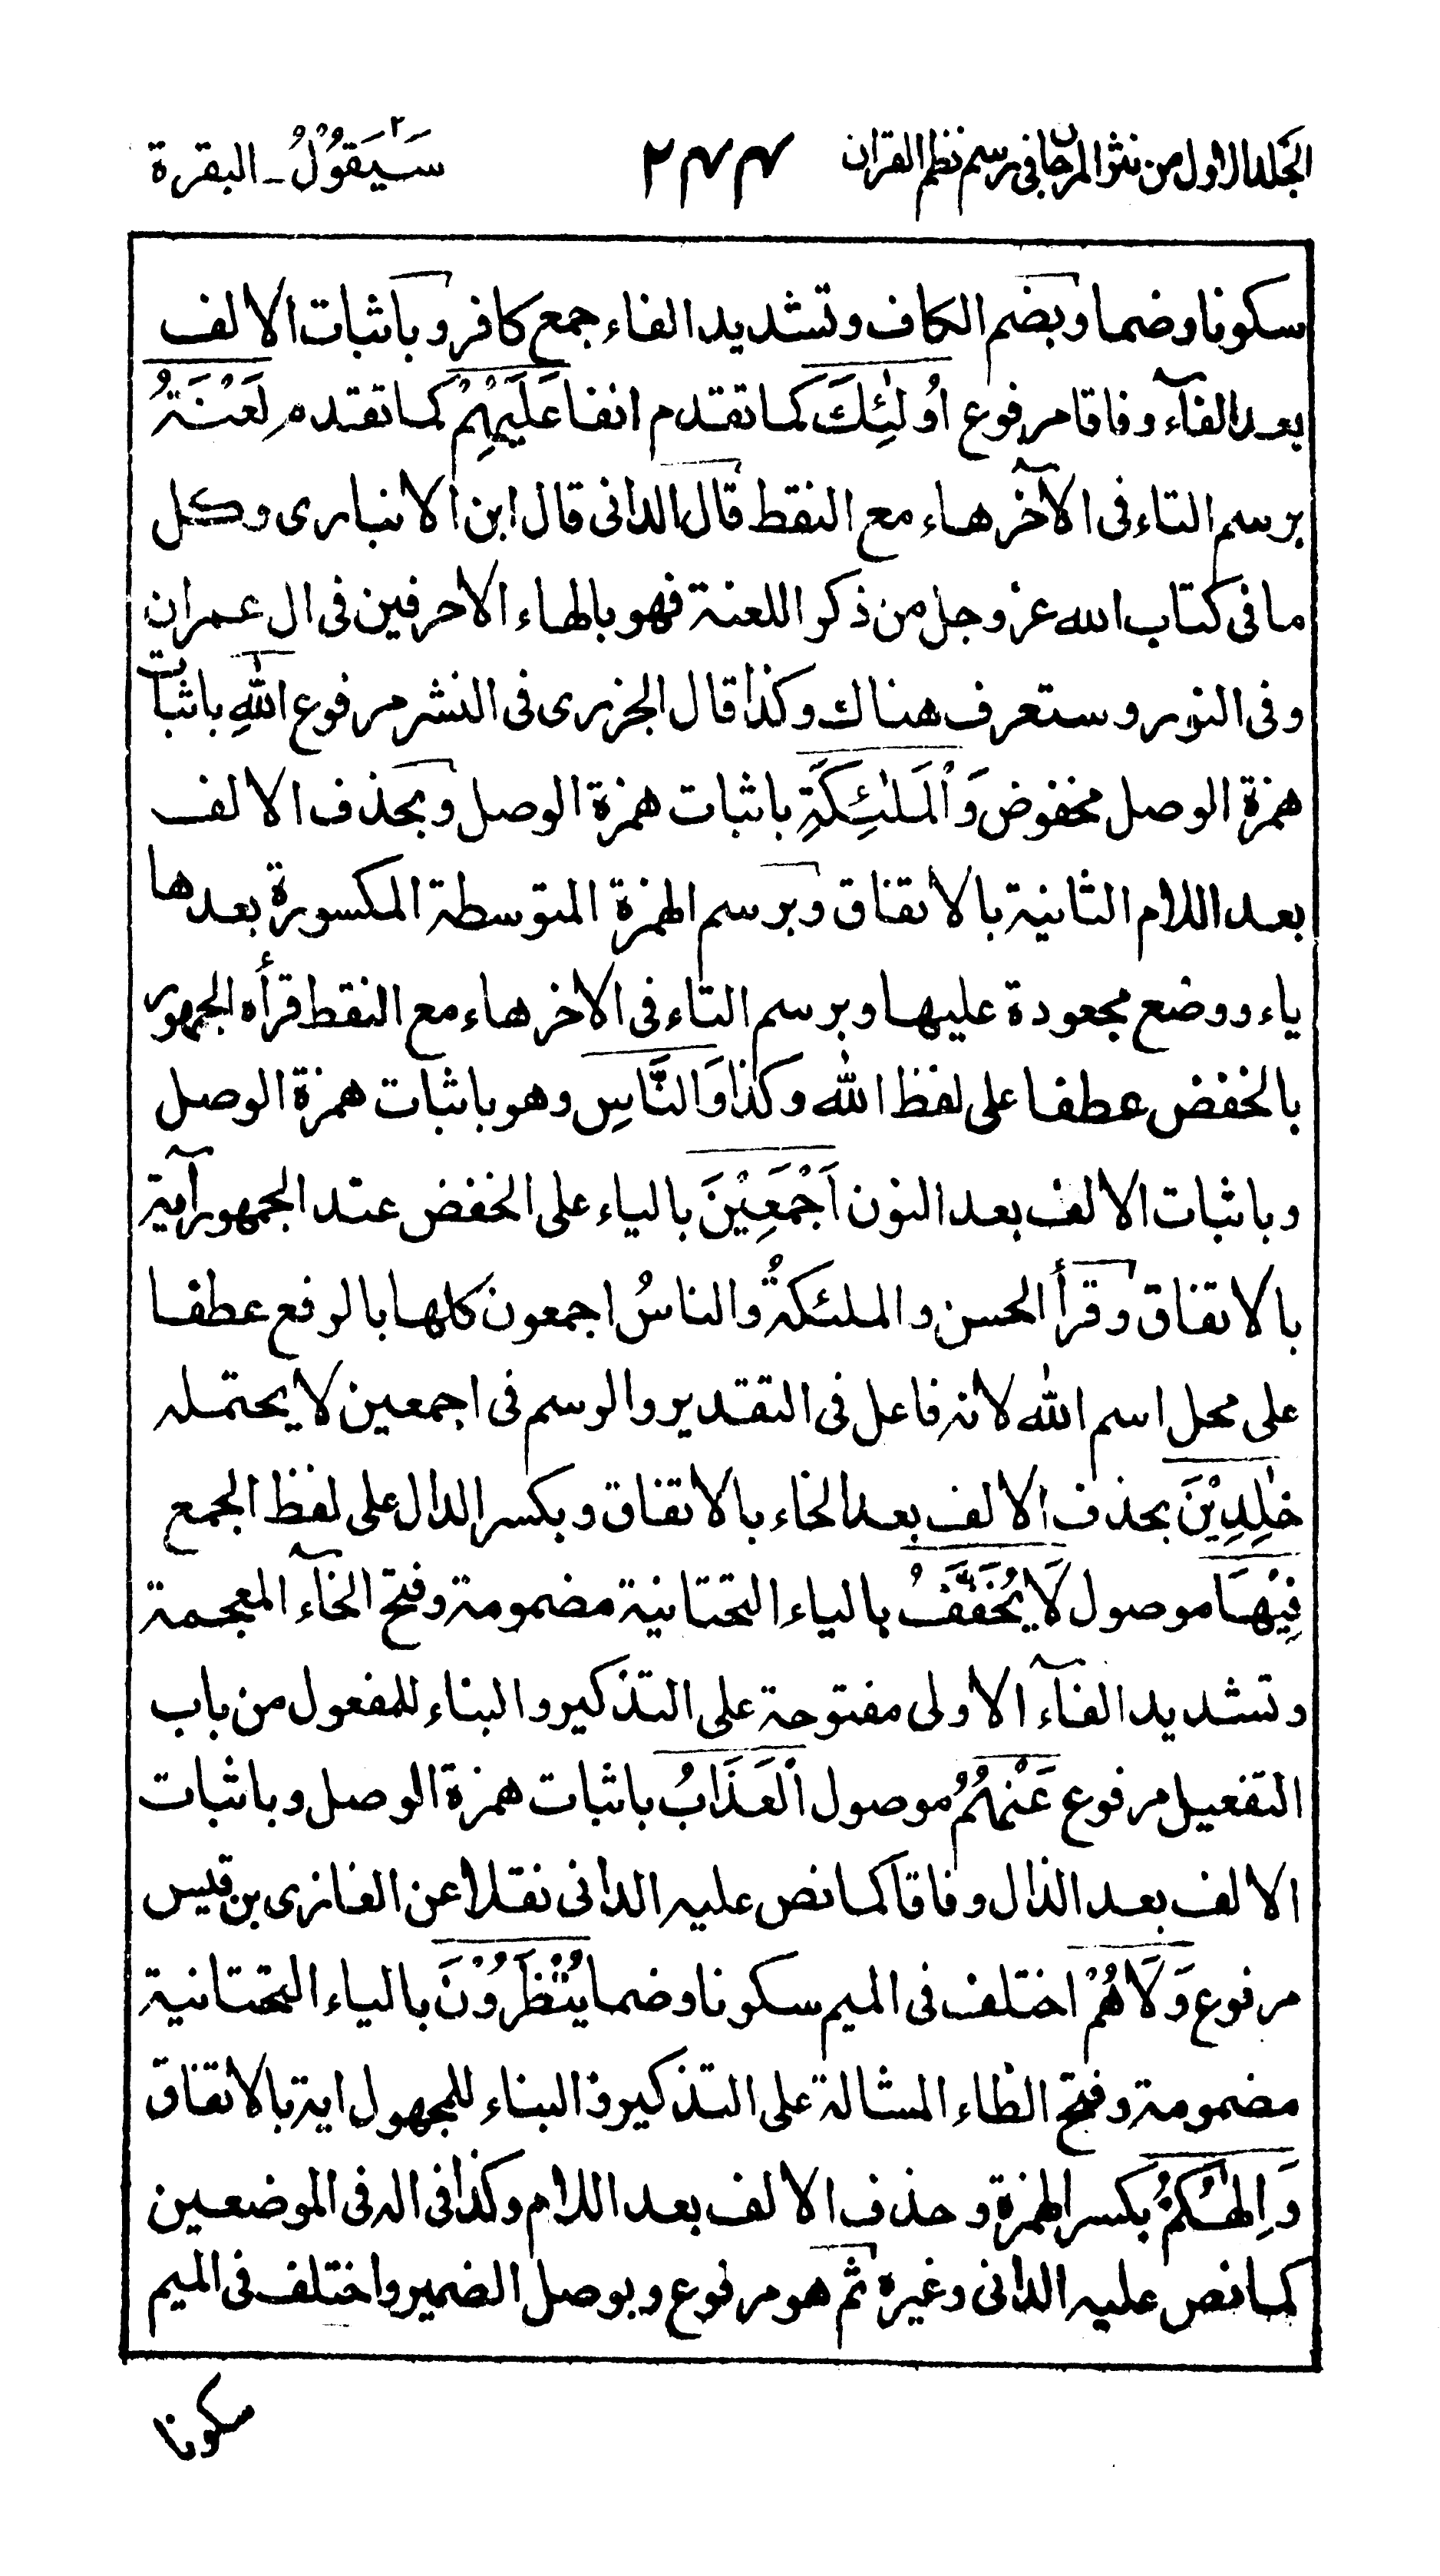 الجلد الاول من نثر المرجان فى رسم نظم القران ٢٤٤ سَيَقُوْلُ ٢ ـ البقرة
سكونا وضما وبضم الكاف وتشديد الفاء جمع كافر وباثبات الالف
بعد الفآء وفاقا مرفوع اُولٰئِكَ كما تقدم انفا عَلَيْهِمْ كما تقدم لَعْنَةُ
برسم التاء فى الآخر هاء مع النقط قال الدانى قال ابن الانبارى وكل
ما فى كتاب الله عز وجل من ذكر اللعنة فهو بالهاء الاحرفين فى ال عمران
وفى النور وستعرف هناك وكذا قال الجزرى فى النشر مرفوع اللّٰهِ باثبات
همزة الوصل مخفوض وَالْمَلٰئِكَةِ باثبات همزة الوصل وبحذف الالف
بعد اللام الثانية بالاتفاق وبرسم الهمزة المتوسطة المكسورة بعدها
ياء ووضع مجعودة عليها وبرسم التاء فى الاخر هاء مع النقط قرأه الجمهور
بالخفض عطفا على لفظ اللّٰه وكذا وَالنَّاسِ وهو باثبات همزة الوصل
وباثبات الالف بعد النون اَجْمَعِيْنَ بالياء على الخفض عند الجمهور آية
بالاتفاق وقرأ الحسن والملئكةُ والناسُ اجمعون كلها بالرفع عطفا
على محل اسم اللّٰه لانه فاعل فى التقدير والرسم فى اجمعين لا يحتمله
خٰلِدِيْنَ بحذف الالف بعد الخاء بالاتفاق وبكسر الدال على لفظ الجمع
فِيْهَا موصول لَا يُخَفَّفُ بالياء التحتانية مضمومة وفتح الخآء المعجمة
وتشديد الفآء الاولى مفتوحة على التذكير والبناء للمفعول من باب
التفعيل مرفوع عَنْهُمُ موصول الْعَذَابُ باثبات همزة الوصل وباثبات
الالف بعد الذال وفاقا كما نص عليه الدانى نقلا عن الغازى بن قيس
مرفوع وَلَا هُمْ اختلف فى الميم سكونا وضما يُنْظَرُوْنَ بالياء التحتانية
مضمومة وفتح الظاء المشالة على التذكير والبناء للمجهول اية بالاتفاق
وَاِلٰهُكُمْ بكسر الهمزة وحذف الالف بعد اللام وكذا فى اله فى الموضعين
كما نص عليه الدانى وغيره ثم هو مرفوع وبوصل الضمير واختلف فى الميم
سكونا